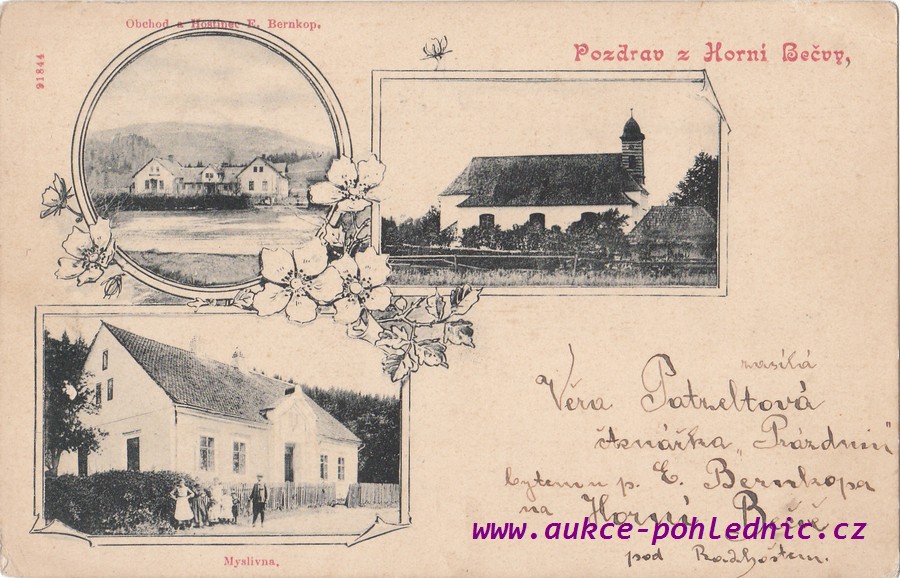 Obchod a Hostinec E. Bernkop.
Pozdrav z Horní Bečvy,
91844
zasílá
Věra Patzeltová
čtenářka „Prázdnin"
bytem u p. E. Bernkopa
na Horní Bečvě
www.aukce-pohlednic.cz
pod Radhoštem.
Myslivna.